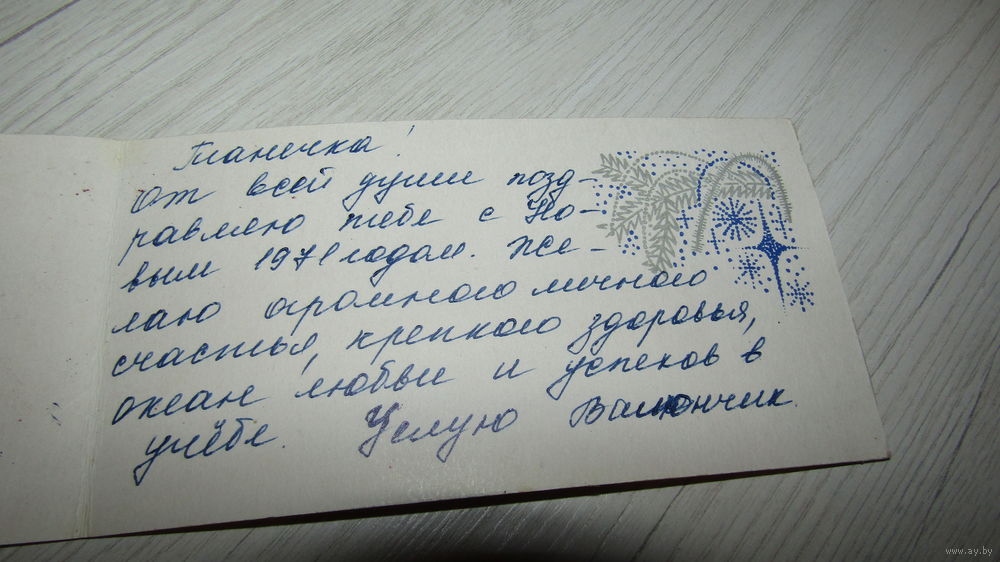 Танечка!
От всей души позд-
равляю тебя с Но-
вым 1971 годом. Же-
лаю огромного личного
счастья, крепкого здоровья,
океан любви и успехов в
учёбе. Целую Валюнчик.
www.ay.by